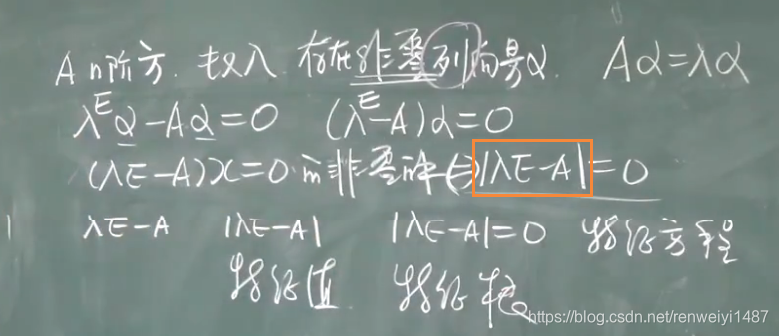 A n阶方. 数λ 存在非零列向量α. Aα=λα
λEα-Aα=0 (λE-A)α=0
(λE-A)x=0 的非零解 |λE-A|=0
λE-A |λE-A| |λE-A|=0 特征方程
特征值 特征根
https://blog.csdn.net/renweiyi1487